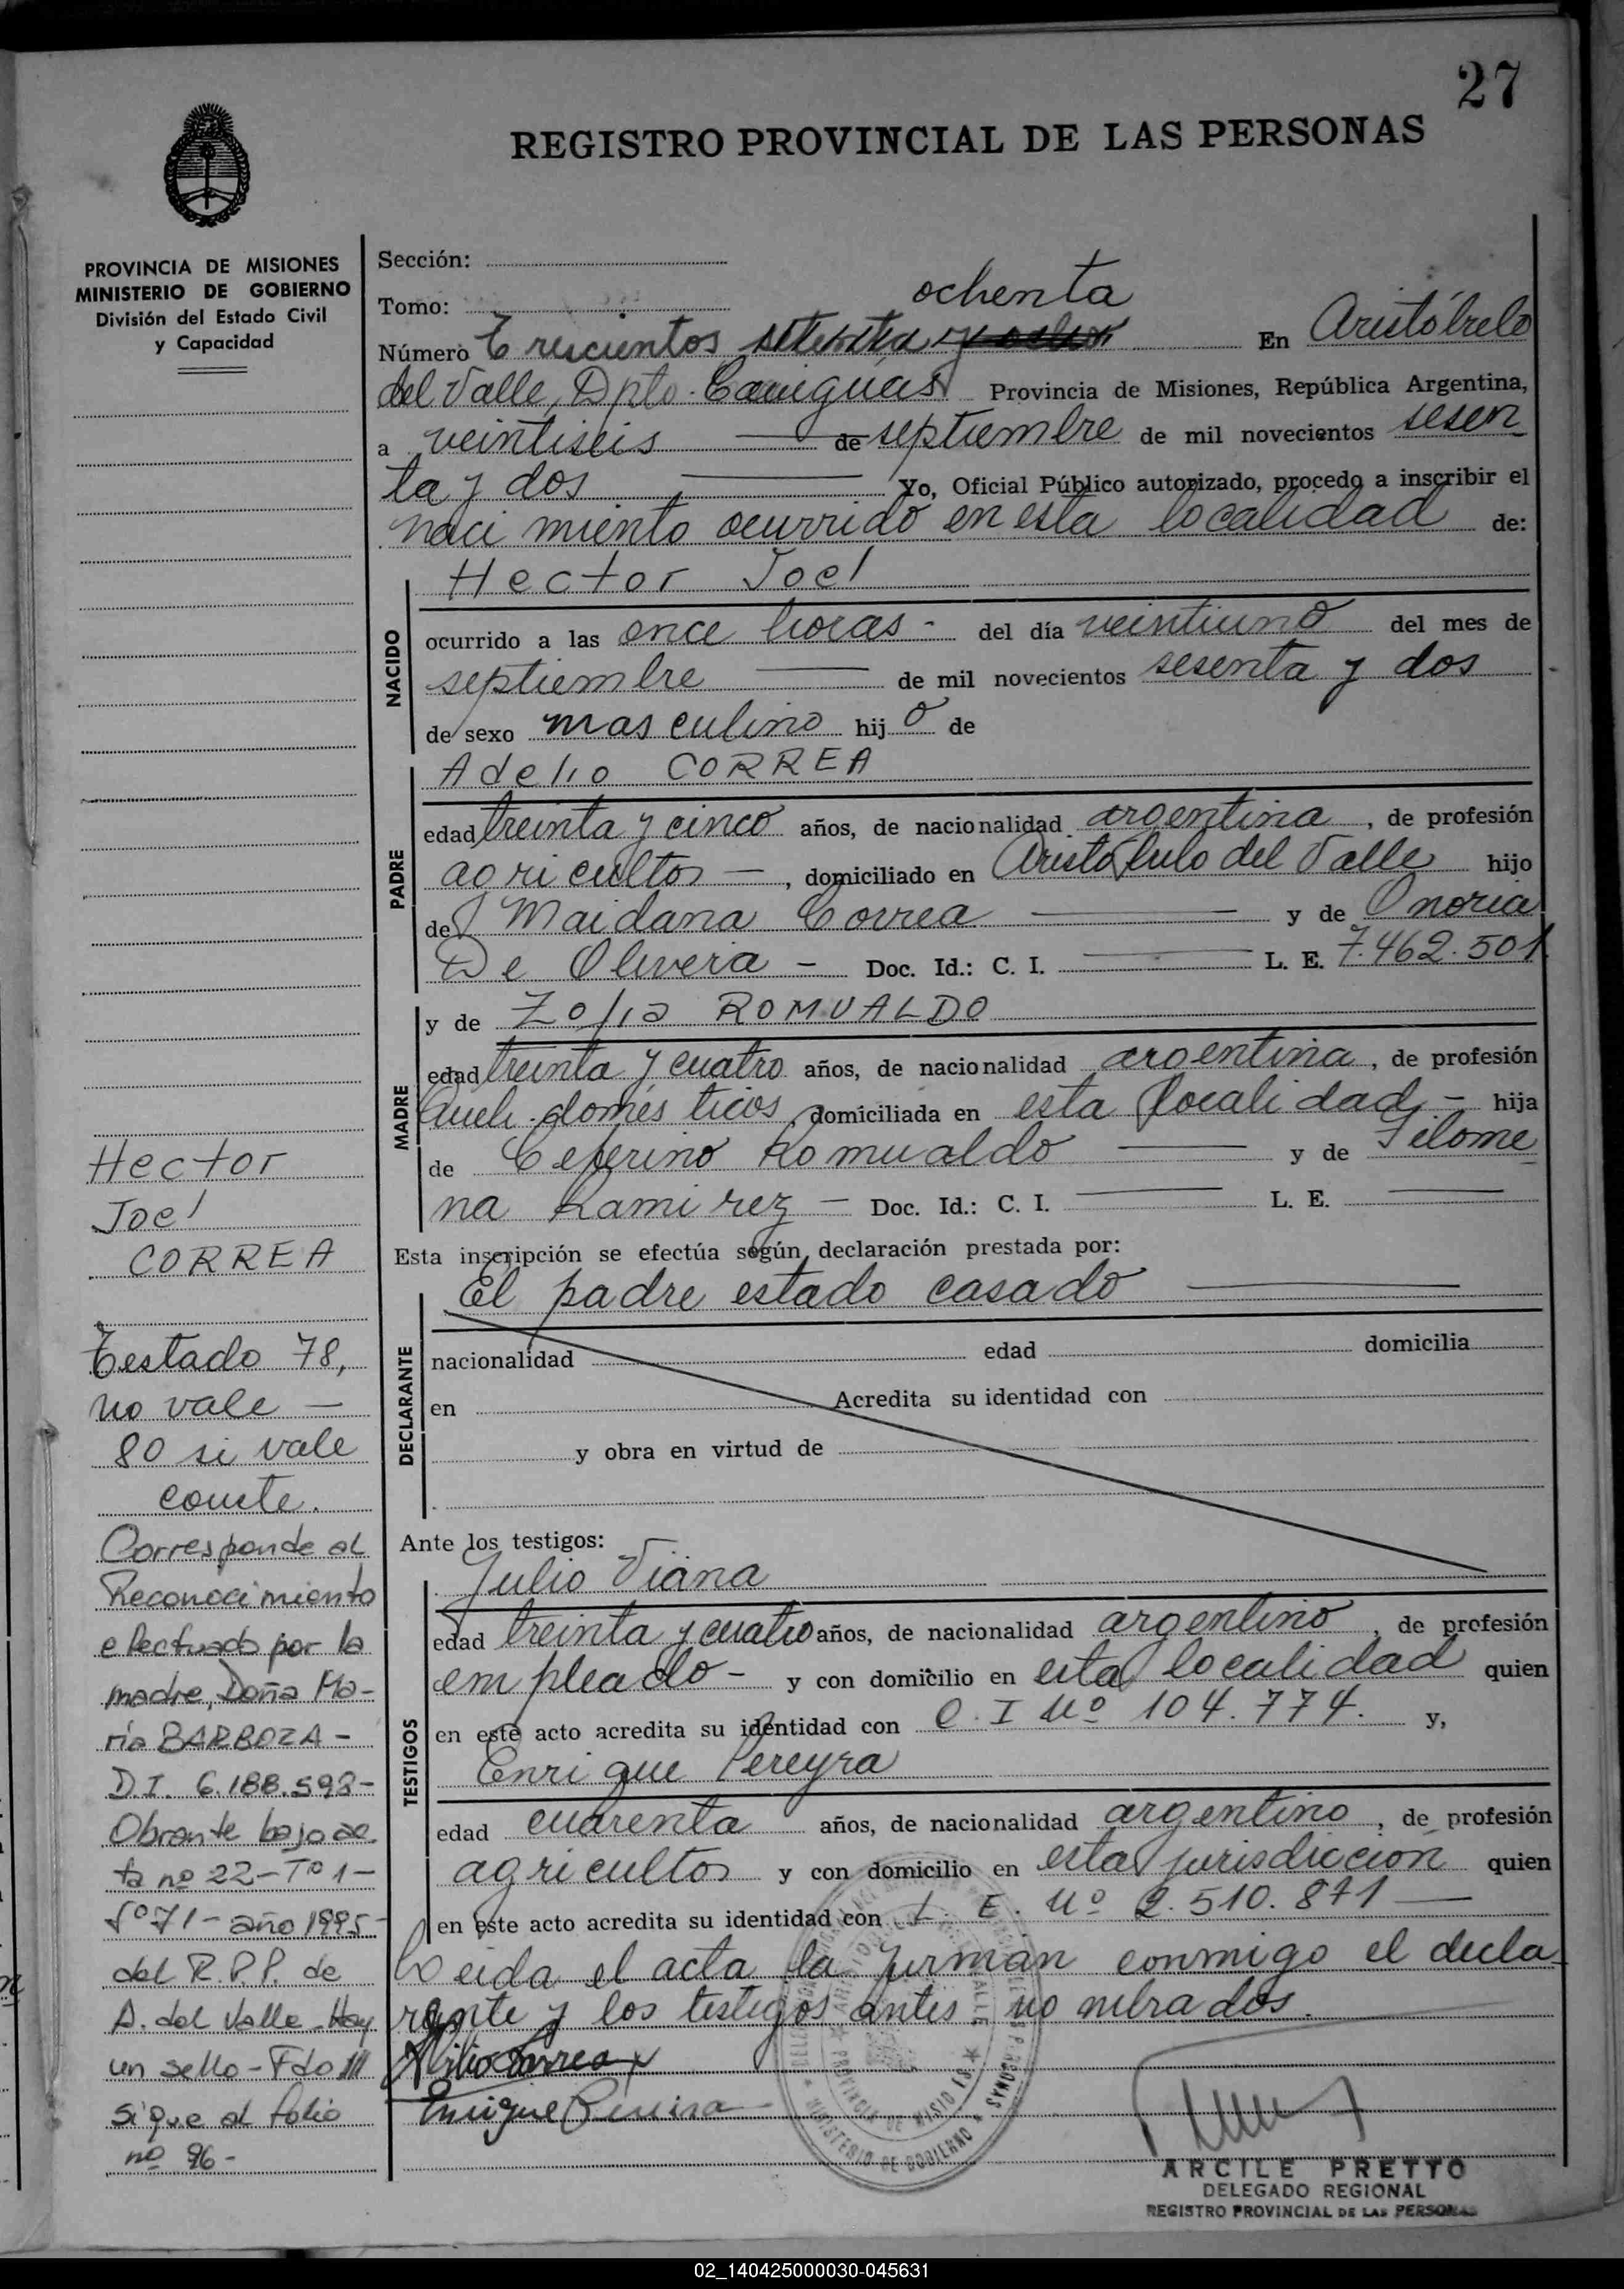 27
REGISTRO PROVINCIAL DE LAS PERSONAS
PROVINCIA DE MISIONES
MINISTERIO DE GOBIERNO
División del Estado Civil
y Capacidad
Sección:
Tomo:
ochenta
Número Trescientos setenta y ocho En Aristóbulo
del Valle, Dpto. Cainguás Provincia de Misiones, República Argentina,
a veintiseis de septiembre de mil novecientos sesen
ta y dos Yo, Oficial Público autorizado, procedo a inscribir el
naci miento ocurrido en esta localidad de:
NACIDO
Hector Joel
ocurrido a las once horas - del día veintiuno del mes de
septiembre de mil novecientos sesenta y dos
de sexo masculino hij o de
PADRE
Adelio CORREA
edad treinta y cinco años, de nacionalidad argentina, de profesión
agricultor -, domiciliado en Aristóbulo del Valle hijo
de Maidana Correa y de Onoria
De Olivera - Doc. Id.: C. I. L. E. 7.462.501
MADRE
y de Zofia ROMUALDO
edad treinta y cuatro años, de nacionalidad argentina, de profesión
Queh. domésticos, domiciliada en esta localidad - hija
de Ceferino Romualdo y de Filome
na Ramirez - Doc. Id.: C. I. L. E.
Esta inscripción se efectúa según declaración prestada por:
DECLARANTE
El padre estado casado
nacionalidad edad domicilia
en Acredita su identidad con
y obra en virtud de
Ante los testigos:
TESTIGOS
Julio Viana
edad treinta y cuatro años, de nacionalidad argentino, de profesión
empleado - y con domicilio en esta localidad quien
en este acto acredita su identidad con C. I Nº 104.774. y,
Enrique Pereyra
edad cuarenta años, de nacionalidad argentino, de profesión
agricultor y con domicilio en esta jurisdiccion quien
en este acto acredita su identidad con L. E. Nº 2.510.871
Leida el acta la firman conmigo el decla
rante y los testigos antes nombrados.
Enrique
ARCILE PRETTO
DELEGADO REGIONAL
REGISTRO PROVINCIAL DE LAS PERSONAS
Hector
Joel
CORREA
Testado 78,
no vale -
80 si vale
conste.
Corresponde al
Reconocimiento
efectuado por la
madre, Doña Ma-
ría BARBOZA -
D.I. 6.188.593-
Obrante bajo ac
ta nº 22-Tº 1-
Fº 71- año 1995-
del R.P.P. de
A. del Valle - Hay
un sello - Fdo ///
Sigue al folio
nº 96-
02_140425000030-045631